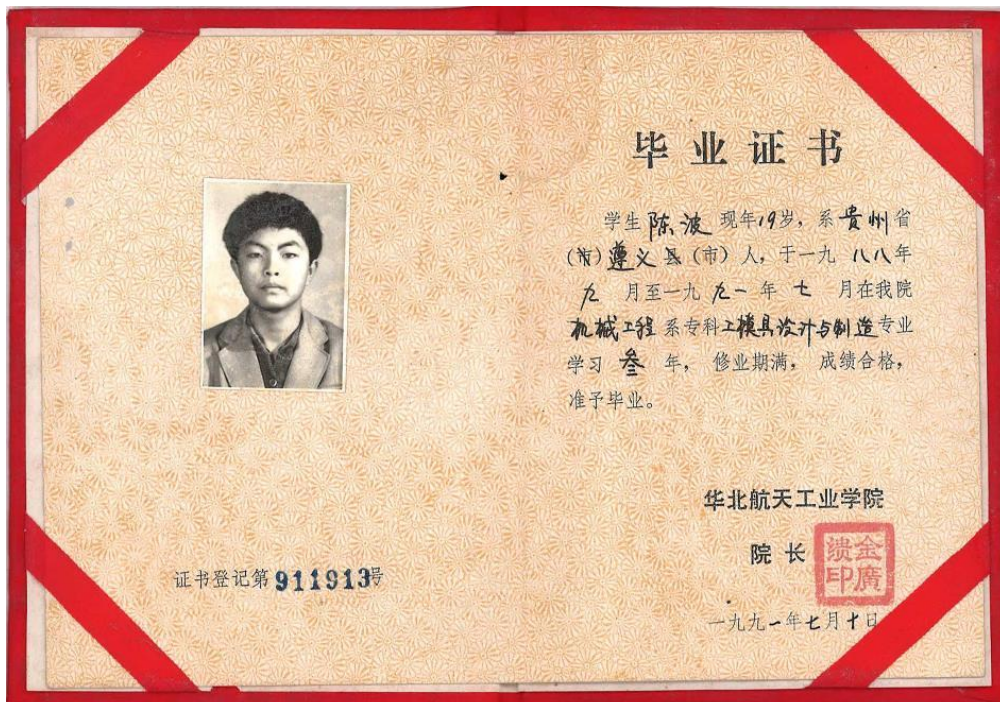 毕业证书
学生陈波现年19岁，系贵州省
(市)遵义县(市)人，于一九八八年
九月至一九九一年七月在我院
机械工程系专科工模具设计与制造专业
学习叁年，修业期满，成绩合格，
准予毕业。
华北航天工业学院
院长
金廣
缋印
一九九一年七月十日
证书登记第911913号